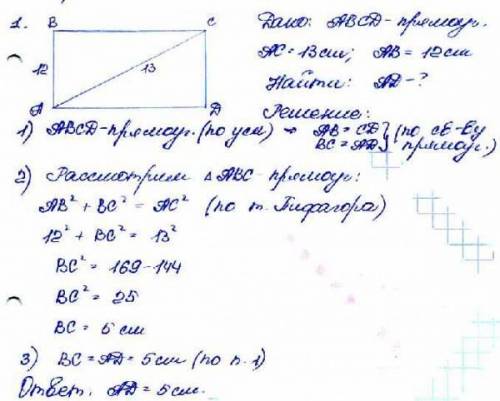 1.
B C
12 13
A D
Дано: ABCD - прямоуг.
AC = 13 см; AB = 12 см
Найти: AD - ?
Решение:
1) ABCD - прямоуг. (по усл) → AB = CD } (по св-ву
BC = AD } прямоуг.)
2) Рассмотрим △ABC - прямоуг:
AB² + BC² = AC² (по т. Пифагора)
12² + BC² = 13²
BC² = 169 - 144
BC² = 25
BC = 5 см
3) BC = AD = 5 см (по п. 1)
Ответ. AD = 5 см.